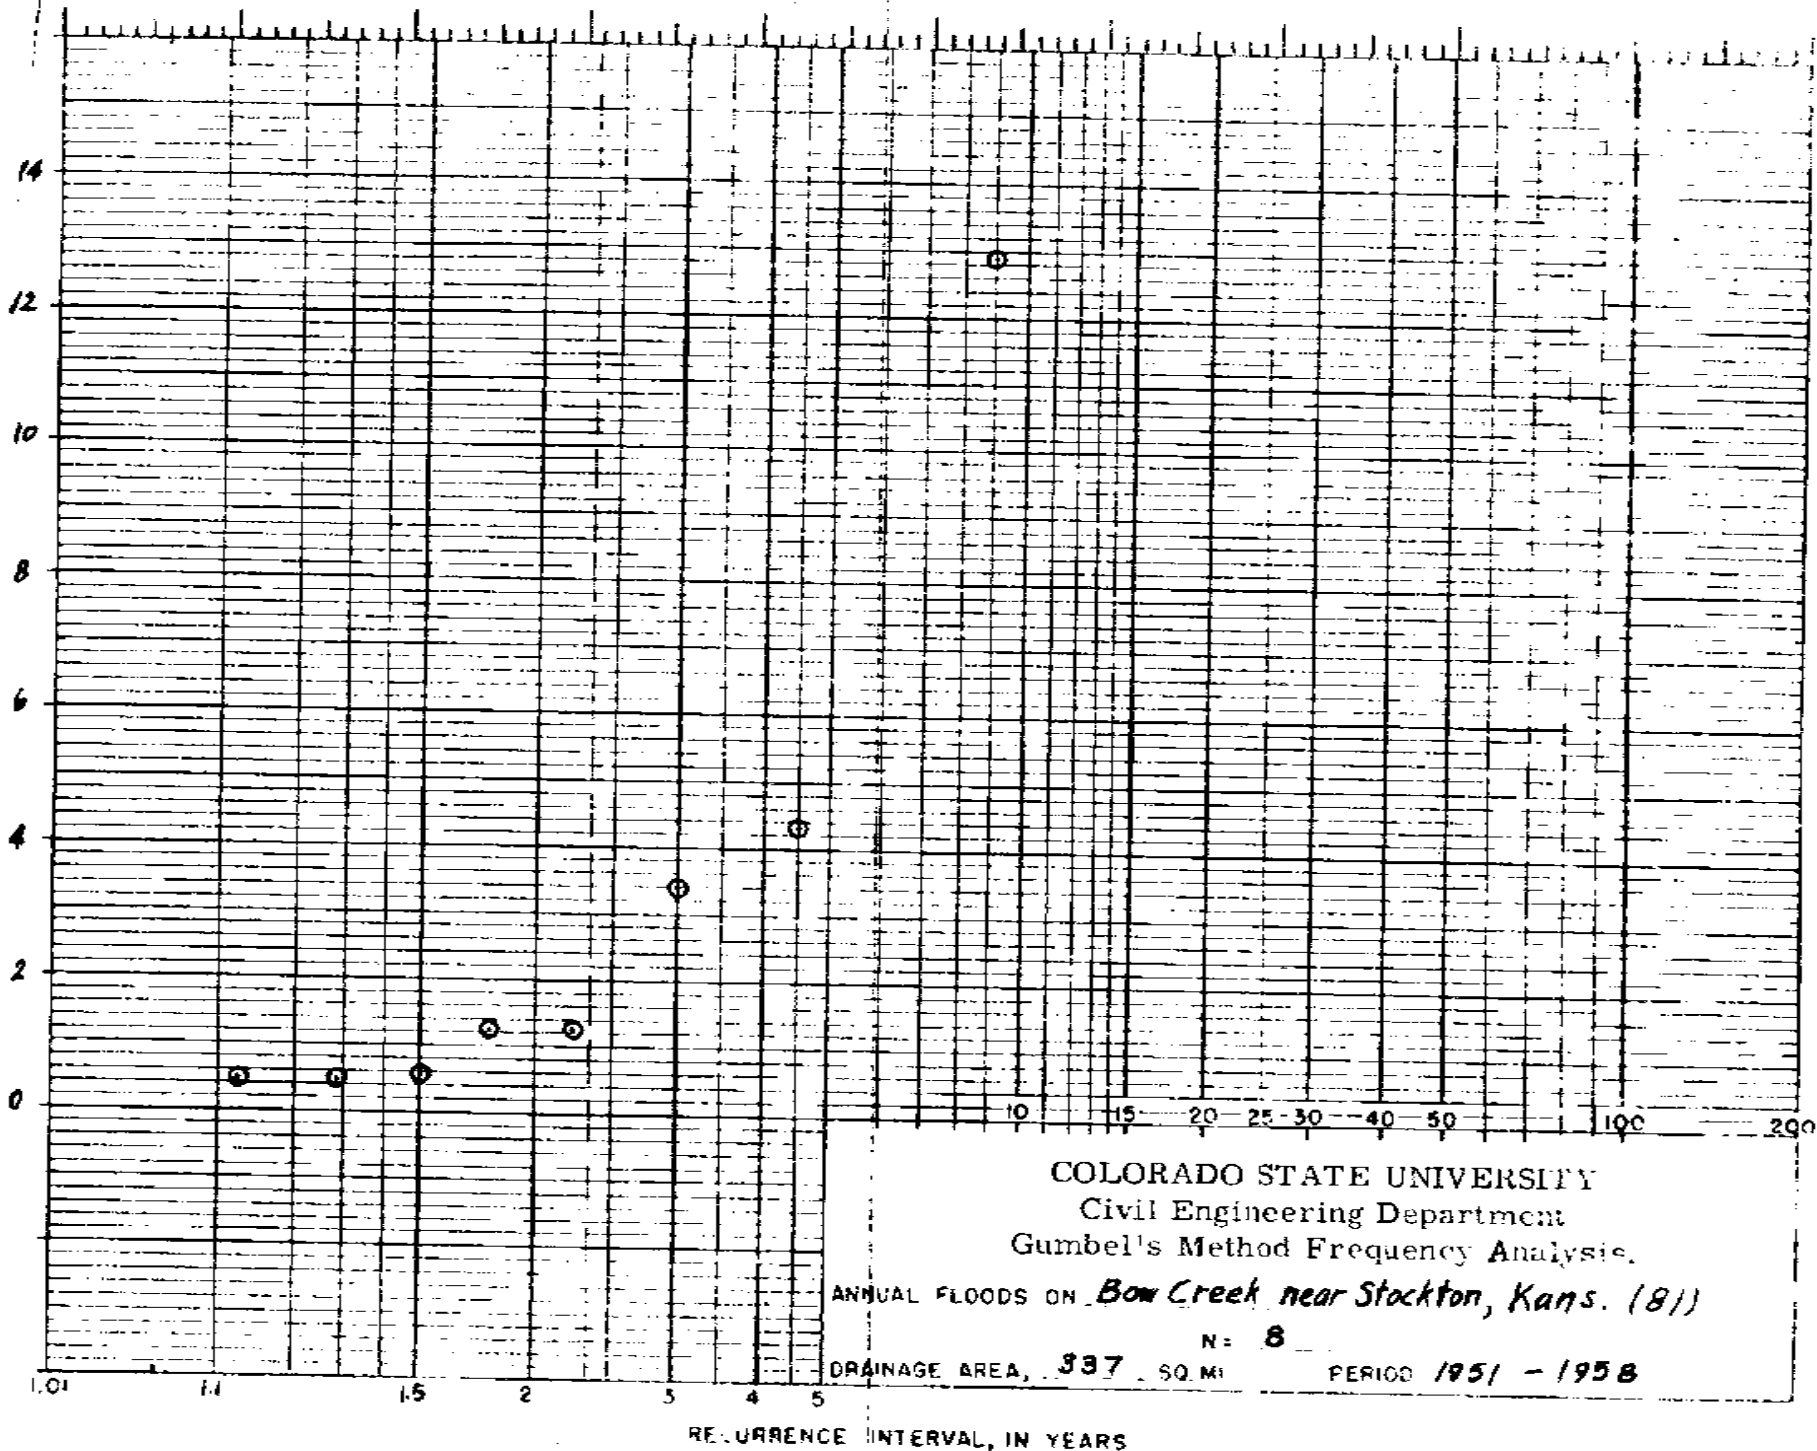 14
12
10
8
6
4
2
0
10 15 20 25 30 40 50 100 200
COLORADO STATE UNIVERSITY
Civil Engineering Department
Gumbel's Method Frequency Analysis.
ANNUAL FLOODS ON Bow Creek near Stockton, Kans. (81)
N= 8
DRAINAGE AREA, 337 SQ. MI PERIOD 1951 - 1958
1.01 1.1 1.5 2 3 4 5
RECURRENCE INTERVAL, IN YEARS